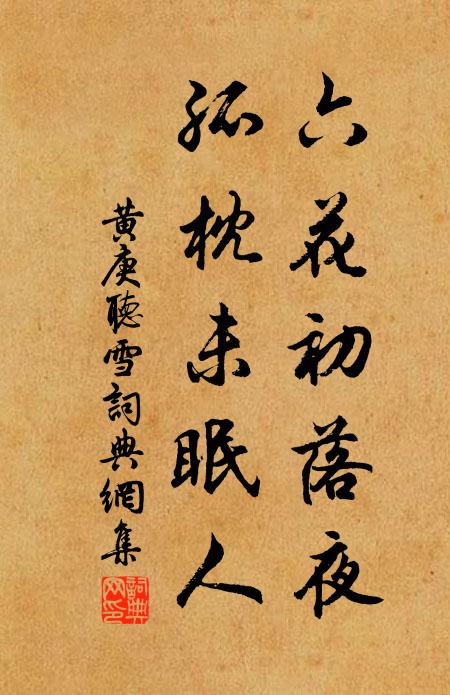 六花初落夜
孤枕未眠人
黄庚聽雪詞典網集
詞典网印